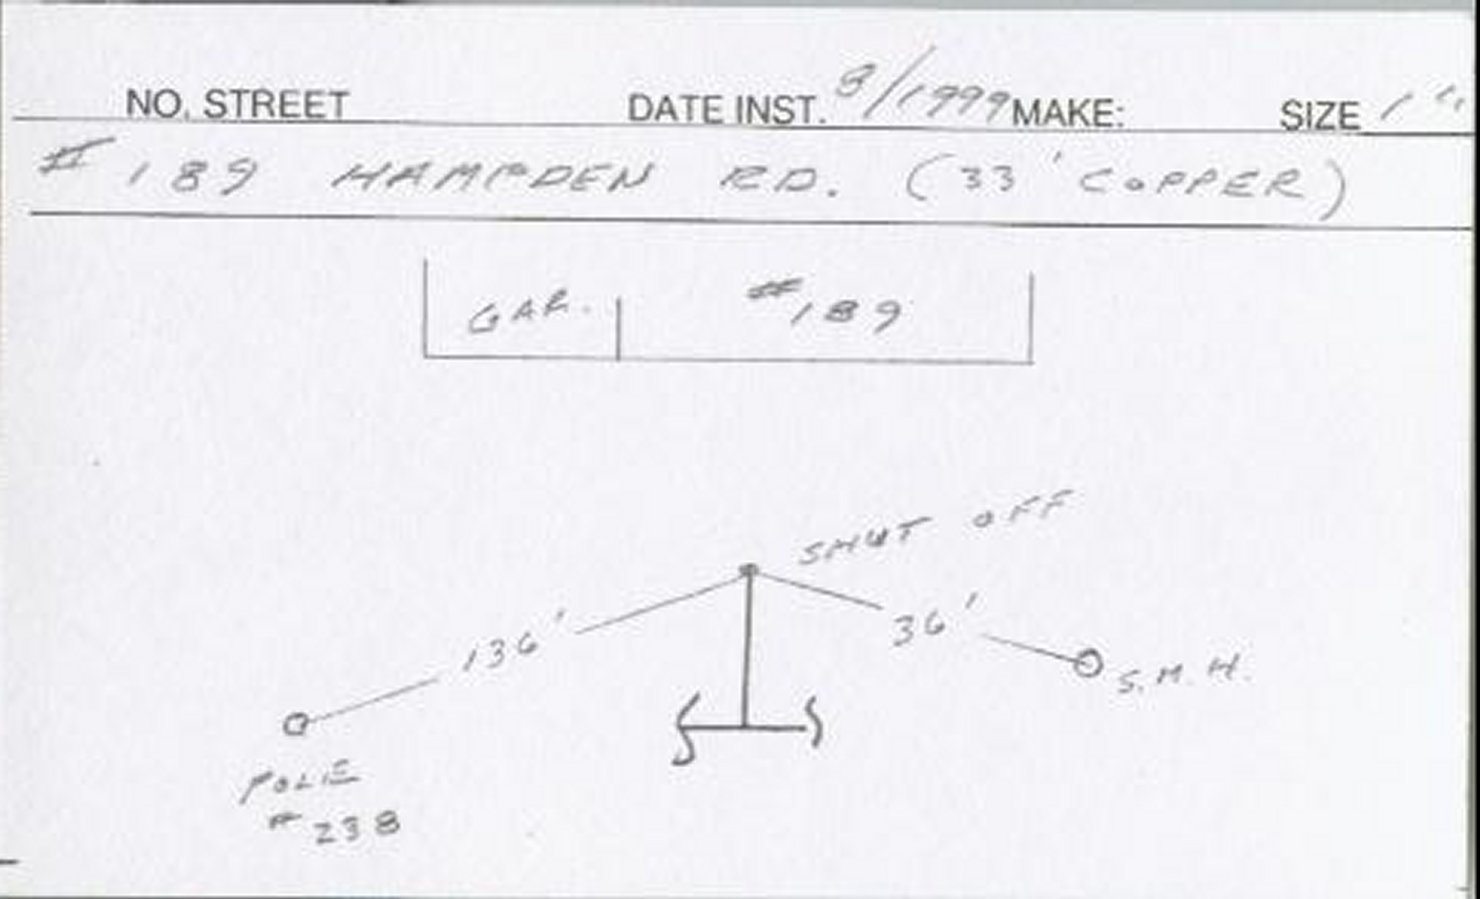 NO. STREET DATE INST. 8/1999 MAKE: SIZE 1"
# 189 HAMPDEN RD. (33' COPPER)
GAR. #189
SHUT OFF
136' 36'
S.M.H.
POLE
# 238